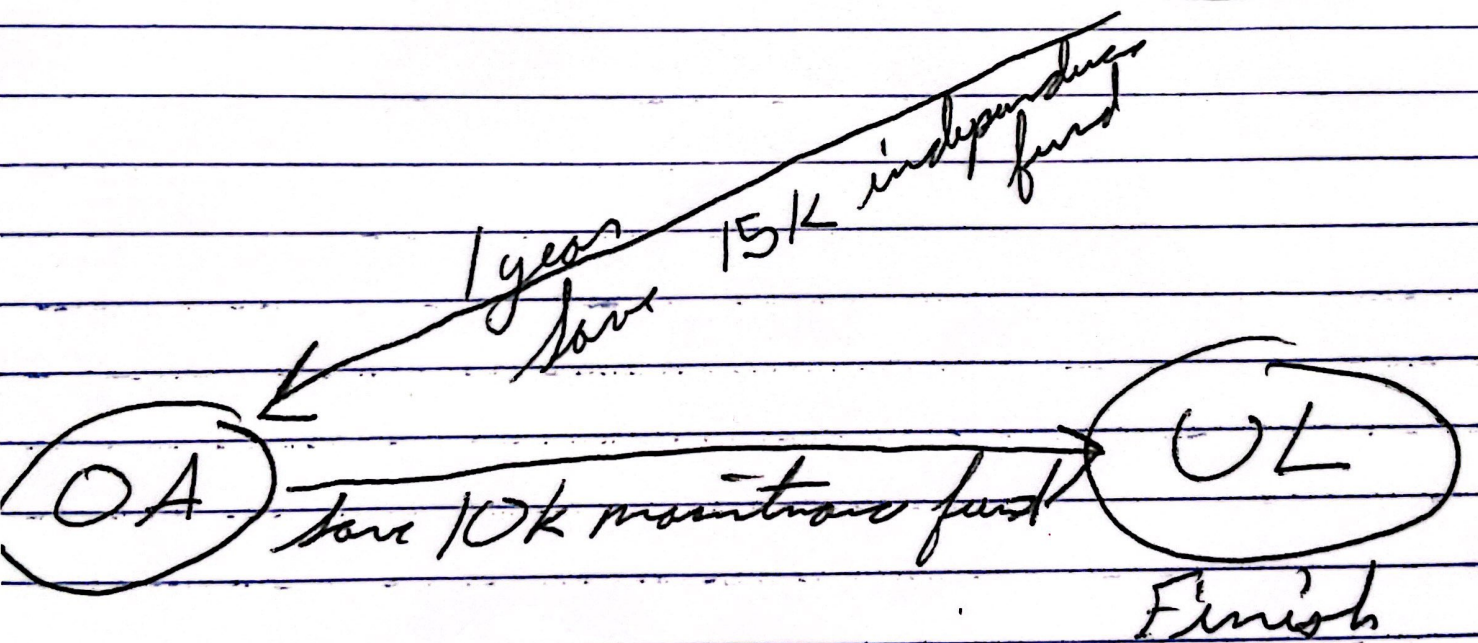 1 year
Save 15K independence
fund
OA
Save 10k maintenance fund
UL
Finish